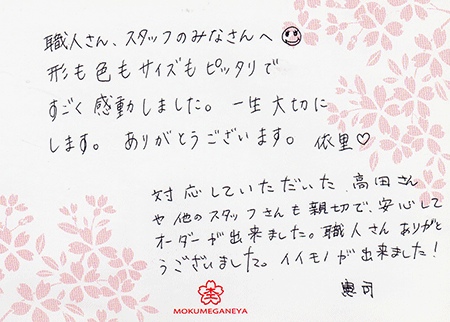 職人さん、スタッフのみなさんへ
形も色もサイズもピッタリで
すごく感動しました。一生大切に
します。ありがとうございます。依里♡
対応していただいた高田さん
や他のスタッフさんも親切で、安心して
オーダーが出来ました。職人さんありがと
うございました。イイモノが出来ました!
恵司
MOKUMEGANEYA